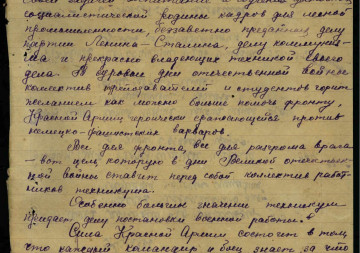 социалистической родине кадров для лесной
промышленности, беззаветно преданных делу
партии Ленина-Сталина, делу коммуниз-
ма и прекрасно владеющих техникой своего
дела. В суровые дни отечественной войны
коллектив преподавателей и студентов горит
желанием как можно больше помочь фронту,
Красной Армии, героически сражающейся против
немецко-фашистских варваров.
Все для фронта, все для разгрома врага
- вот цель, которую в дни Великой отечествен-
ной войны ставит перед собой коллектив работ-
ников техникума.
Особенно большое значение техникум
придает делу постановки военной работы.
Сила Красной Армии состоит в том,
что каждый командир и боец знает за что